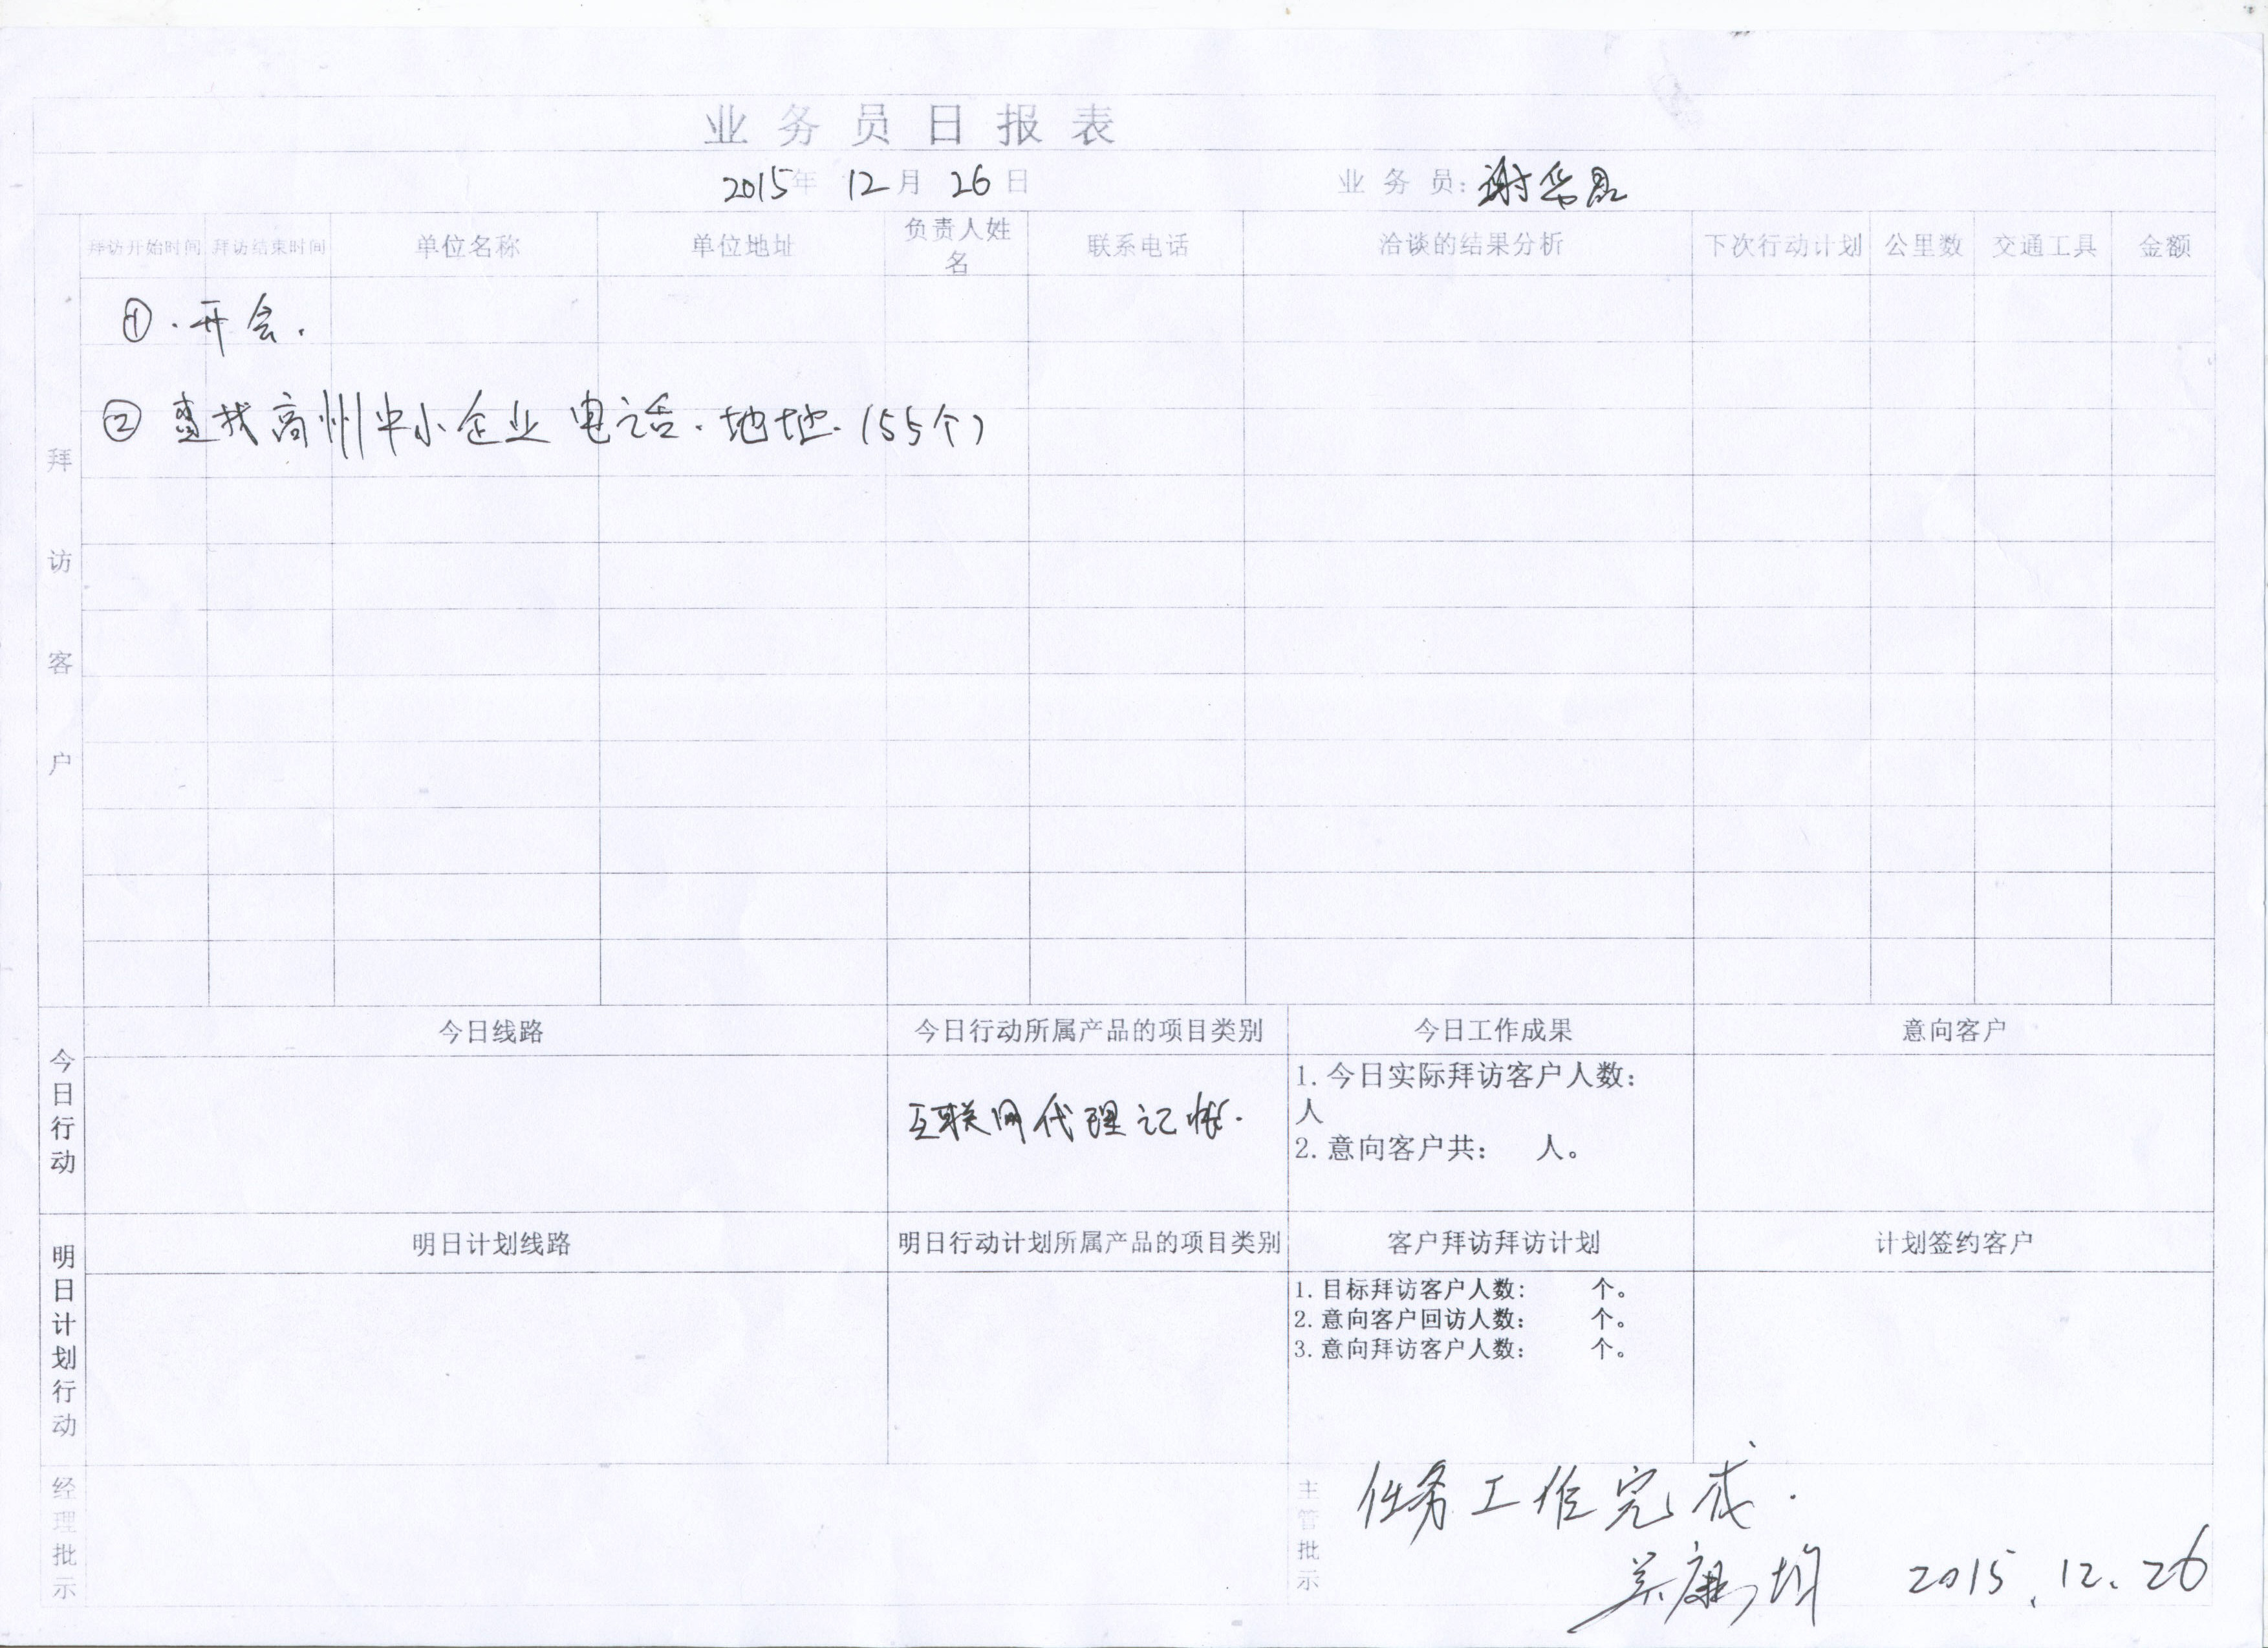 业务员日报表
2015年 12月 26日 业务员:谢
拜访开始时间 拜访结束时间 单位名称 单位地址 负责人姓名 联系电话 洽谈的结果分析 下次行动计划 公里数 交通工具 金额
拜访客户
①.开会.
② 查找高州中小企业电话.地址.(55个)
今日行动
今日线路 今日行动所属产品的项目类别 今日工作成果 意向客户
互联网代理记帐.
1.今日实际拜访客户人数:
人
2.意向客户共: 人。
明日计划行动
明日计划线路 明日行动计划所属产品的项目类别 客户拜访拜访计划 计划签约客户
1.目标拜访客户人数: 个。
2.意向客户回访人数: 个。
3.意向拜访客户人数: 个。
经理批示
主管批示
任务工作完成.
2015.12.26